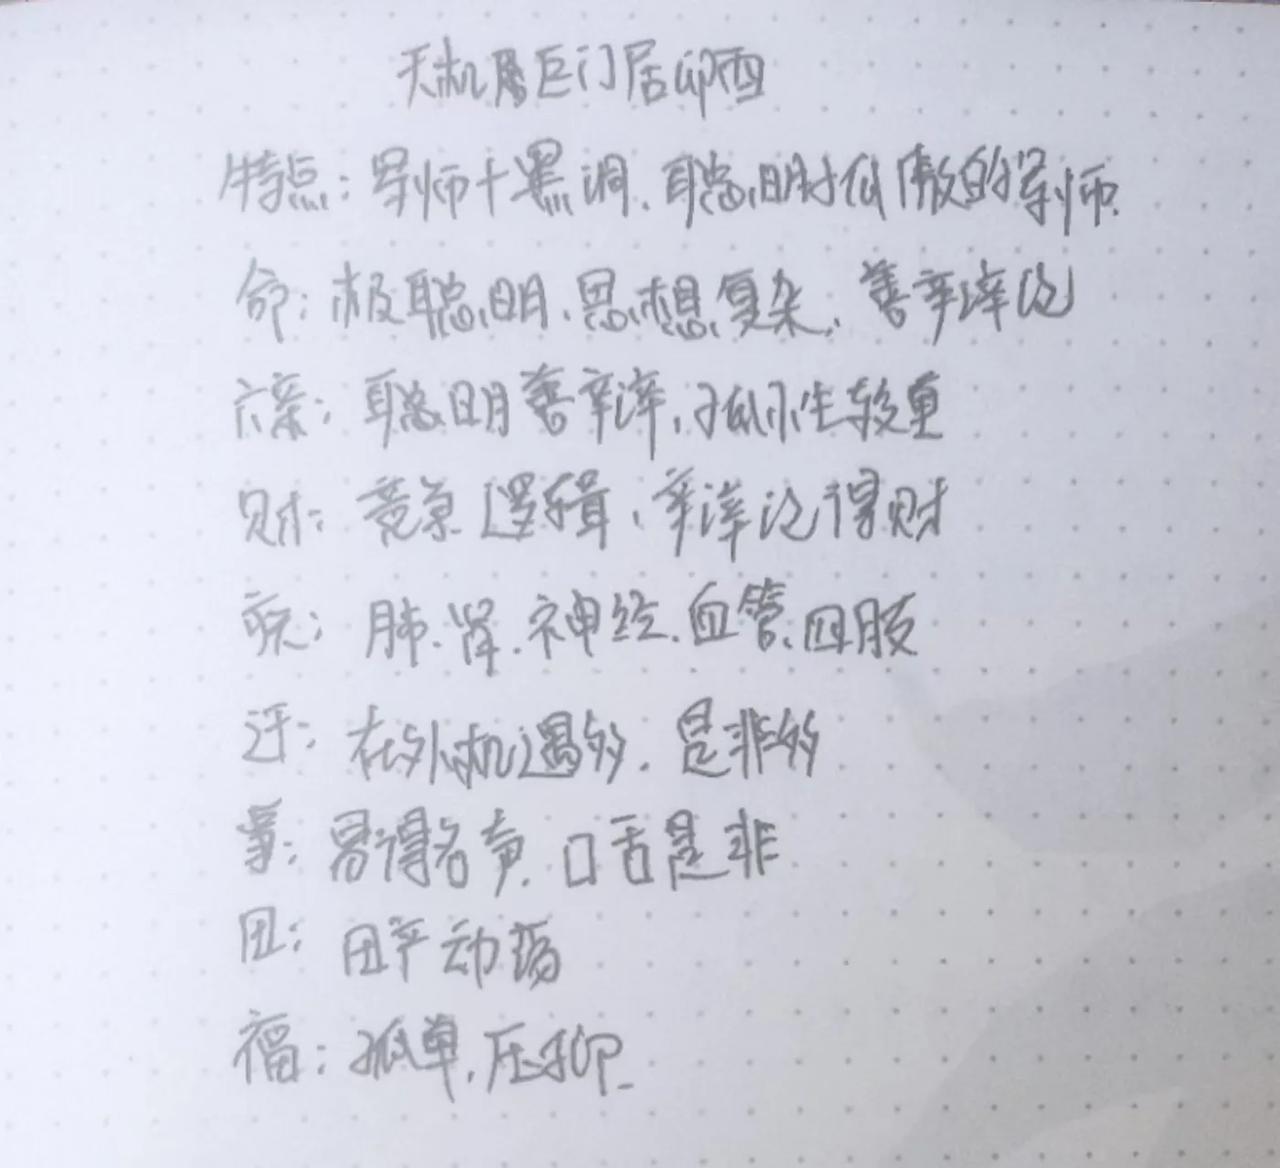 天机星巨门居卯酉
特点：军师+黑洞、聪明才似傲的军师
命：极聪明、思想复杂、善辛辩论
六亲：聪明善辩，孤小生较重
财：竞争逻辑、辩论得财
疾：肺、肾、神经、血管、四肢
迁：在外机遇多、是非多
事：易得名声、口舌是非
田：田产动荡
福：孤单，压抑